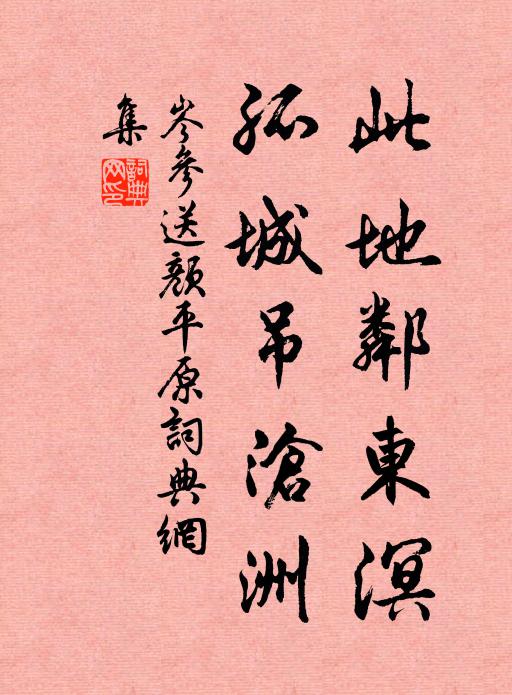 此地鄰東溟
孤城吊滄洲
岑參送顏平原詞典網
集
詞典
网印